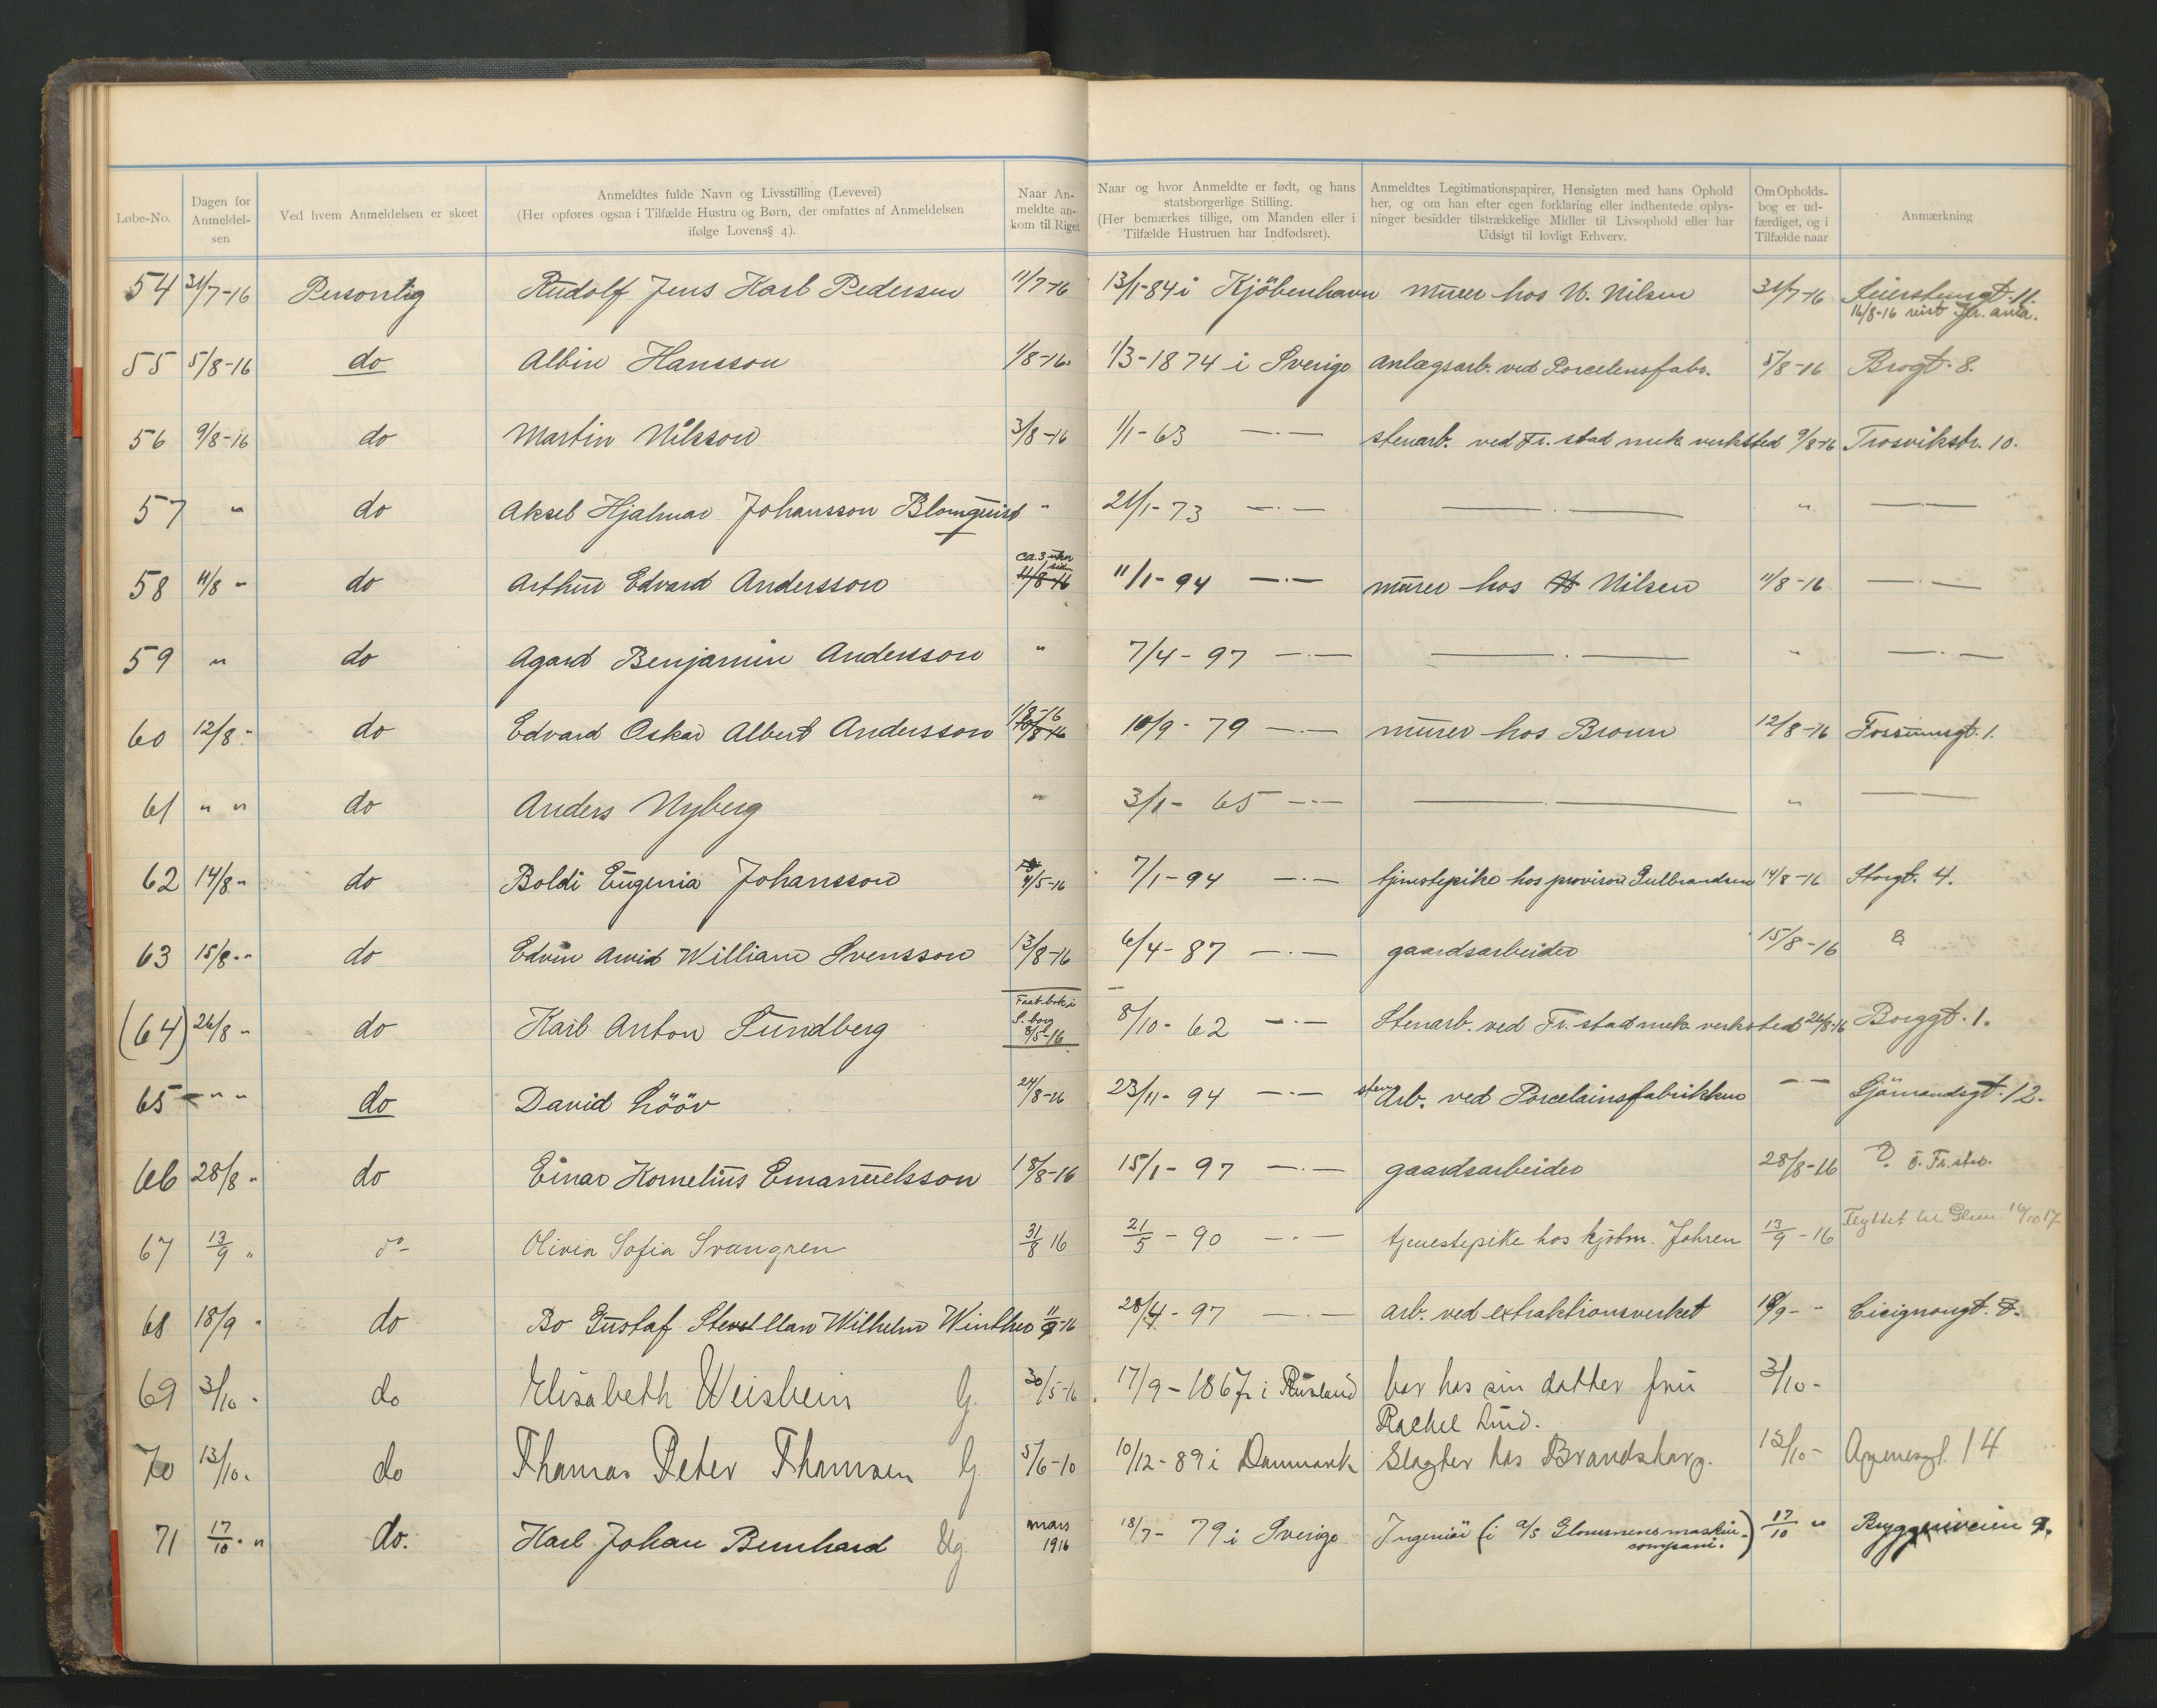 Løbe-No.
Dagen for Anmeldel-sen
Ved hvem Anmeldelsen er skeet
Anmeldtes fulde Navn og Livsstilling (Levevei)
(Her opføres ogsaa i Tilfælde Hustru og Børn, der omfattes af Anmeldelsen
ifølge Lovens§ 4).
Naar An-
meldte an-
kom til Riget
Naar og hvor Anmeldte er født, og hans
statsborgerlige Stilling.
(Her bemærkes tillige, om Manden eller i
Tilfælde Hustruen har Indfødsret).
Anmeldtes Legitimationspapirer, Hensigten med hans Ophold
her, og om han efter egen forklaring eller indhentede oplys-
ninger besidder tilstrækkelige Midler til Livsophold eller har
Udsigt til lovligt Erhverv.
Om Opholds-
bog er ud-
færdiget, og i
Tilfælde naar
Anmærkning
54 31/7-16 Personlig Rudolf Jens Karl Pedersen 11/7-16 13/1-84 i Kjöbenhavn murer hos N. Nilsen 31/7-16
16/8-16 reist
55 5/8-16 do Albin Hansson 1/8-16 1/3-1874 i Sverige Anlægsarb. ved Porcelensfabr. 5/8-16 Brogt. 8.
56 9/8-16 do Martin Nilsson 3/8-16 1/1-63 —·— stenarb. ved Fr.stad mek verksted 9/8-16 Trosvikstr. 10.
57 " do Aksel Hjalmar Johansson Blomquist " 21/1-73 —·— —·— " —·—
ca. 3 uker
58 11/8 " do Arthur Edvard Andersson 11/8-16 11/1-94 —·— murer hos N Nilsen 11/8-16 —·—
59 " do Agard Benjamin Andersson " 7/4-97 —·— —·— " —·—
1/8-16
60 12/8 " do Edvard Oskar Albert Andersson 10/8-16 10/9-79 —·— murer hos Bronn 12/8-16 Fossumsgt. 1.
61 " " do Anders Nyberg " 3/1-65 —·— —·— " —·—
62 14/8 " do Boldi Eugenia Johansson 4/5-16 7/1-94 —·— tjenestepike hos provisor Gulbrandsen 14/8-16 Storgt. 4.
63 15/8 " do Edvin Arvid William Svensson 13/8-16 6/4-87 —·— gaardsarbeider 15/8-16
Faat bok i
S.borg
(64) 26/8 " do Karl Anton Sundberg 8/5-16 8/10-62 —·— Stenarb. ved Fr.stad mek verksted 26/8-16 Borggt. 1.
65 — " " do David Lööv 24/8-16 23/11-94 —·— sten Arb. ved Porcelainsfabrikken —·— Sjömandsgt. 12.
66 28/8 " do Einar Kornelius Emanuelsson 18/8-16 15/1-97 —·— gaardsarbeider 28/8-16 ? ö. Fr.stad.
67 13/9 " do Olivia Sofia Svangren 31/8 16 21/5-90 —·— tjenestepike hos kjöbm. Johren 13/9-16 Flyttet til Glem. 16/10 17
68 18/9 " do Bo Gustaf Wilhelm Winther 11/9-16 28/4-97 —·— arb. ved extraktionsverket 18/9- " Cicignongt.
69 3/10 - do Elisabeth Weisbein G. 30/5-16 17/9-1867 i Rusland bor hos sin datter fru 3/10-
Rachel Lind.
70 13/10. do Thomas Peter Thomsen G. 5/6-10 10/12-89 i Danmark Slagter hos Brandsborg. 13/10-  14
71 17/10 - " do. Karl Johan Bernhard Ug mars 1916 18/7-79 i Sverige Ingeniör (i a/s Glommens maskin-
compani.) 17/10 " Bryggeriveien 9.